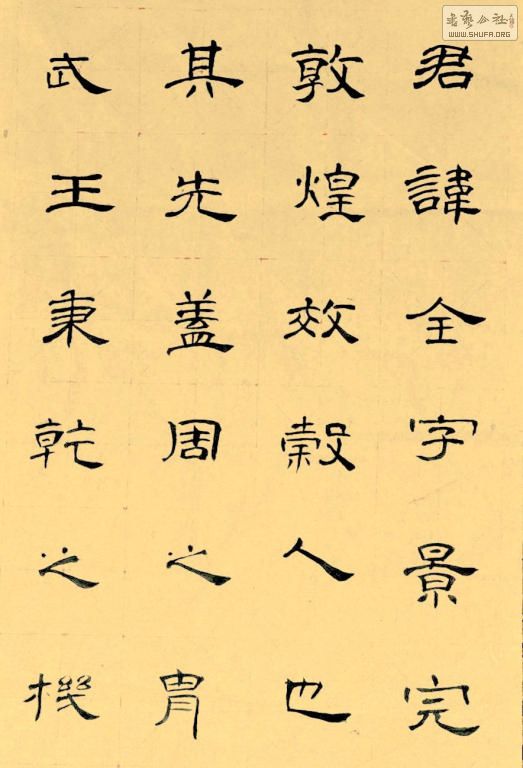 君諱全字景完
敦煌效穀人也
其先蓋周之胄
武王秉乾之機
書藝公社
WWW.SHUFA.ORG